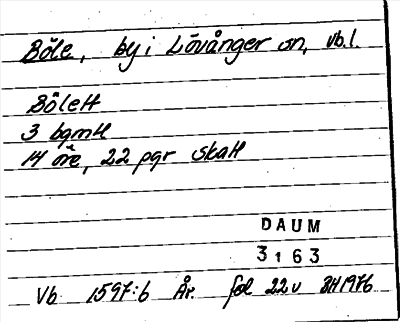 Böle, by i Lövånger sn, vb.l.
Bölett
3 bgmtt
14 öre, 22 pgr skatt
DAUM
3163
Vb 1597:6 År. fol 22v BH1976